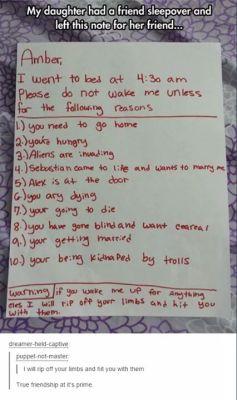 My daughter had a friend sleepover and
left this note for her friend...
Amber,
I went to bed at 4:30 am
Please do not wake me unless
for the following reasons
1.) you need to go home
2.) your hungry
3.) Aliens are invading
4.) Sebastian came to life and wants to marry me
5) Alex is at the door
6.) you ary dying
7.) your going to die
8.) you have gone blind and want ceareal
9.) your getting married
10.) your being kidnaped by trolls
Warning if you wake me up for anything
eles I will rip off your limbs and hit you
with them.
dreamer-held-captive:
puppet-not-master:
I will rip off your limbs and hit you with them
True friendship at it's prime.